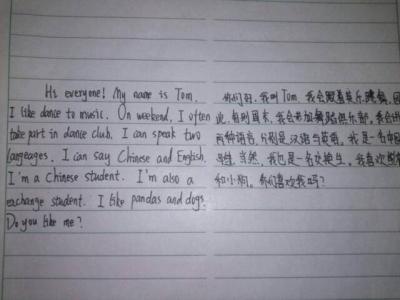 Hi everyone! My name is Tom.
I like dance to music. On weekend, I often
take part in dance club. I can speak two
languages. I can say Chinese and English.
I'm a Chinese student. I'm also a
exchange student. I like pandas and dogs.
Do you like me?
你们好，我叫Tom，我会跟着音乐跳舞，因
此，每到周末，我会参加舞蹈俱乐部，我会讲
两种语言，分别是汉语与英语，我是一名中国
当然，我也是一名交换生，我喜欢熊猫
和小狗，你们喜欢我吗？